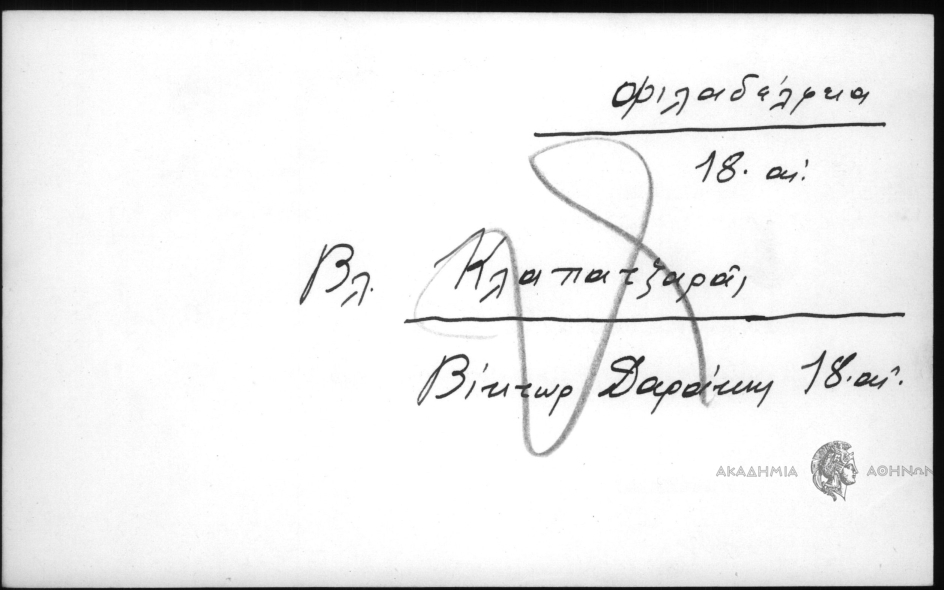 Φιλαδέλφεια
18. αι.
Βλ. Κλαπατζαρᾶς
Βίκτωρ Δαράκης 18. αι.
ΑΚΑΔΗΜΙΑ ΑΘΗΝΩΝ